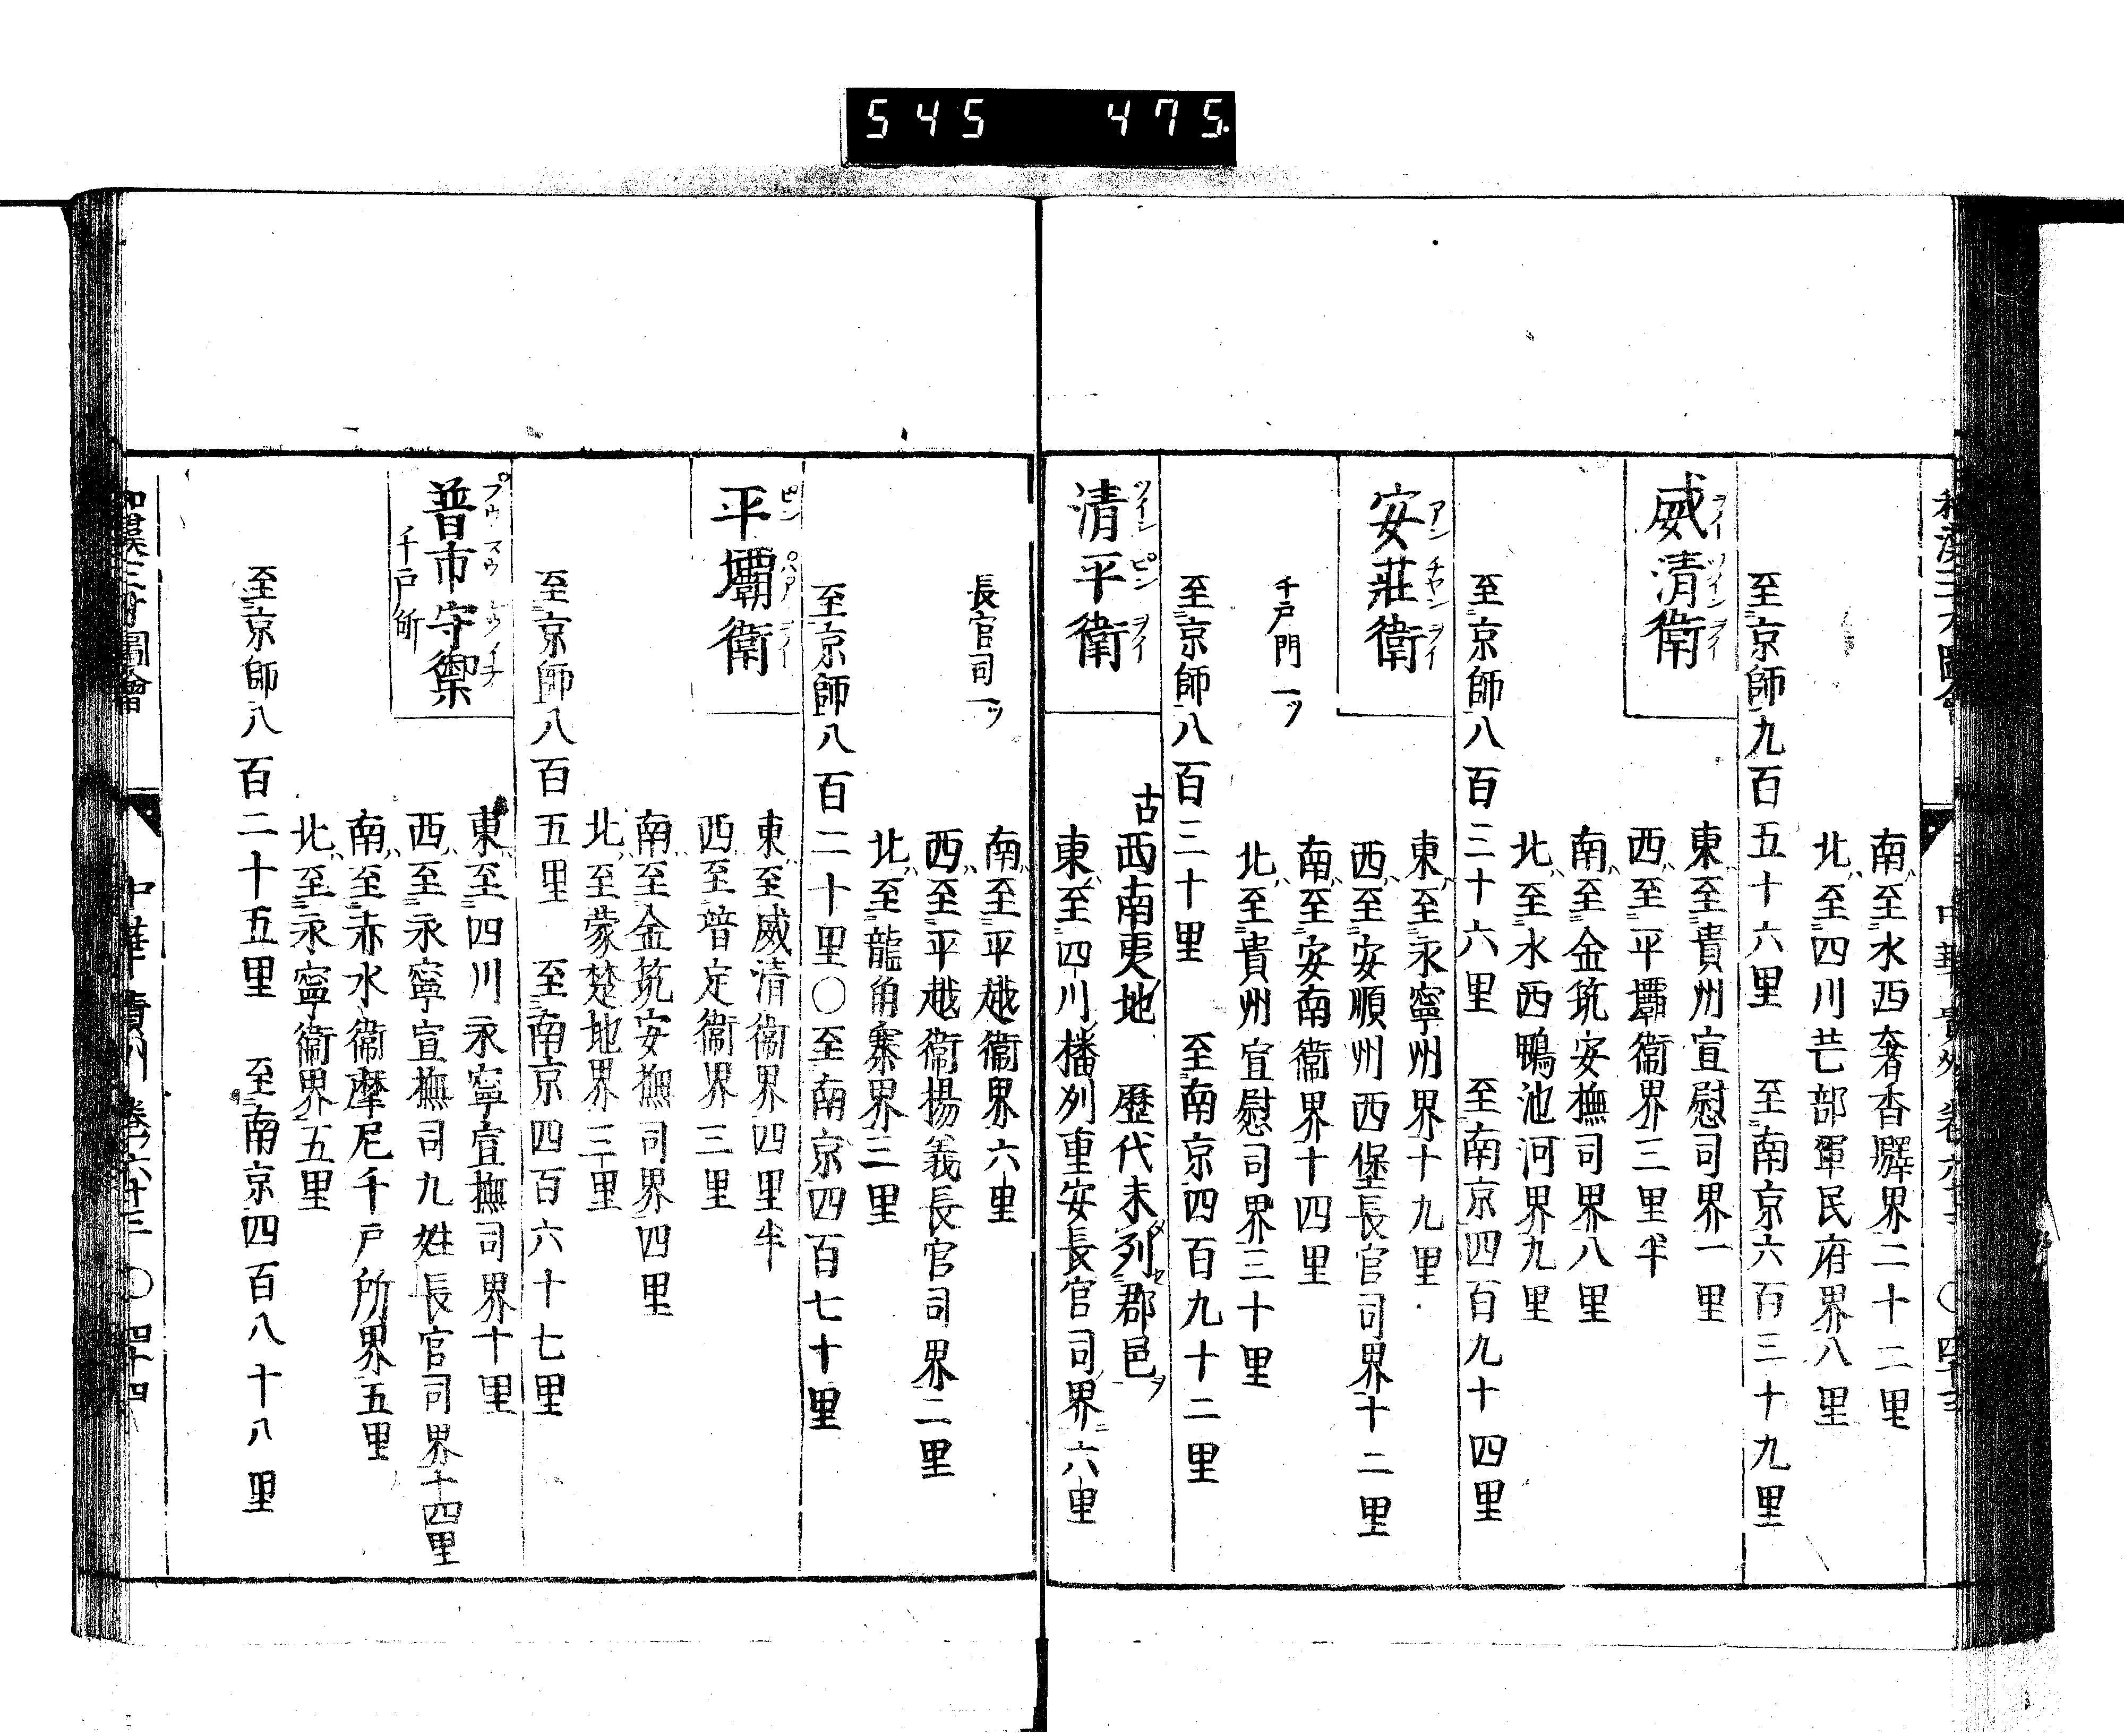 545 475.
和漢三才圖會 中華 貴州 卷六十三 〇 四十三
南至水西奢香驛界二十二里
北至四川芒部軍民府界八里
至京師九百五十六里 至南京六百三十九里
威清衛
ヲイツインヲイ
東至貴州宣慰司界一里
西至平壩衛界三里半
南至金筑安撫司界八里
北至水西鴨池河界九里
至京師八百三十六里 至南京四百九十四里
安莊衛
アンチヤンヲイ
東至永寧州界十九里
西至安順州西堡長官司界十二里
南至安南衛界十四里
千戸門一ツ
北至貴州宣慰司界三十里
至京師八百三十里 至南京四百九十二里
清平衛
ツインピンヲイ
古西南夷地 歷代未列郡邑ヲ
東至四川播列重安長官司界六里
南至平越衛界六里
長官司一ツ
西至平越衛揚義長官司界二里
北至龍角寨界三里
至京師八百二十里〇至南京四百七十里
平壩衛
ピンパアヲイ
東至威清衛界四里半
西至普定衛界三里
南至金筑安撫司界四里
北至蒙楚地界三里
至京師八百五里 至南京四百六十七里
普市守禦
千戸所
東至四川永寧宣撫司界十里
西至永寧宣撫司九姓長官司界十四里
南至赤水衛摩尼千戸所界五里
北至永寧衛界五里
至京師八百二十五里 至南京四百八十八里
和漢三才圖會 中華 貴州 卷六十三 〇 四十四